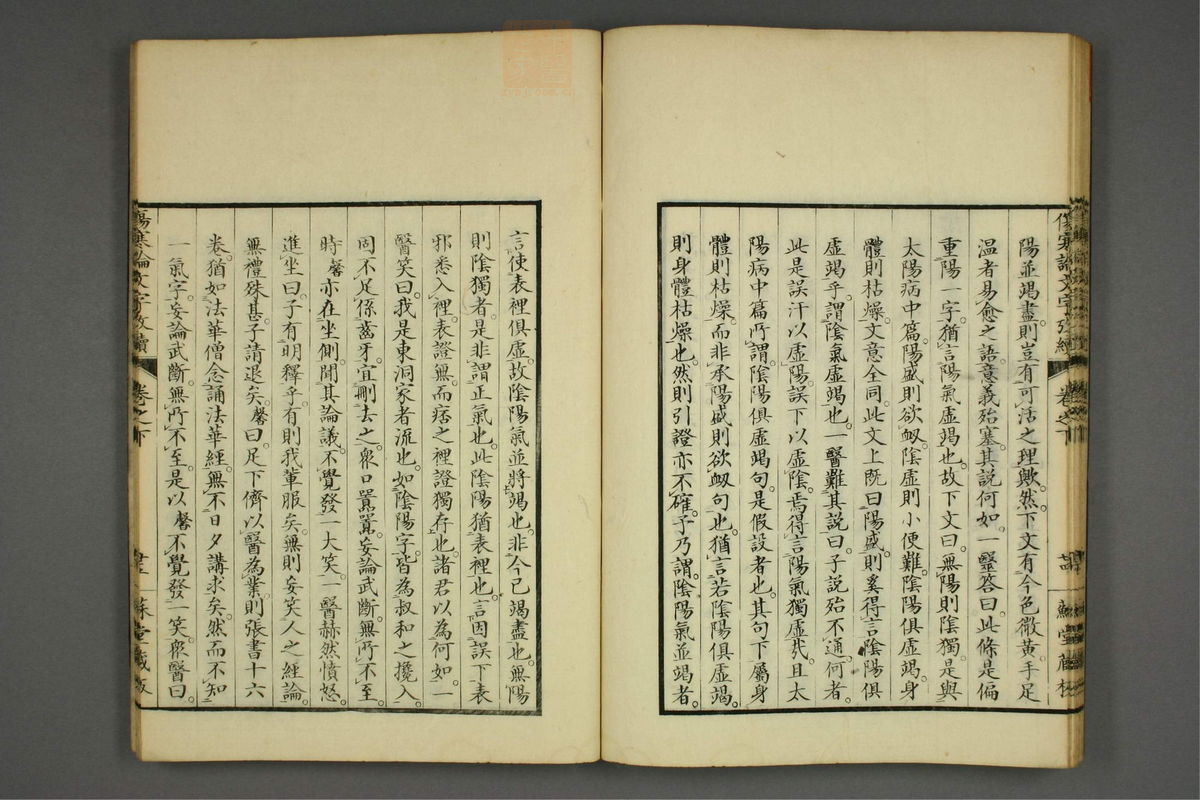 陽並竭盡則豈有可活之理歟。然下文有今色微黃手足
温者易愈之語。意義殆塞。其説何如。一醫答曰。此條是偏
重陽一字。猶言陽氣虛竭也。故下文曰。無陽則陰獨。是與
太陽病中篇。陽盛則欲衂。陰虛則小便難。陰陽俱虛竭。身
體則枯燥。文意全同。此文上既曰陽盛。則奚得言陰陽俱
虛竭乎。謂陰氣虛竭也。一醫難其説曰。子説殆不通。何者。
此是誤汗以虛陽。誤下以虛陰。焉得言陽氣獨虛哉。且太
陽病中篇所謂。陰陽俱虛竭句。是假設者也。其句下屬身
體則枯燥。而非承陽盛則欲衂句也。猶言若陰陽俱虛竭。
則身體枯燥也。然則引證亦不確。予乃謂。陰陽氣並竭者。
言使表裡俱虛。故陰陽氣並將竭也。非今已竭盡也。無陽
則陰獨者。是非謂正氣也。此陰陽猶表裡也。言因誤下表
邪悉入裡。表證無而痞之裡證獨存也。諸君以為何如。一
醫笑曰。我是東洞家者流也。如陰陽字。皆為叔和之攙入
固不足係齒牙。宜刪去之。衆口囂囂。妄論武斷。無所不至
時馨亦在坐側。聞其論議。不覺發一大笑。一醫赫然憤怒。
進坐曰。子有明釋乎。有則我輩服矣。無則妄笑人之經論。
無禮殊甚。子請退矣。馨曰。足下儕以醫為業。則張書十六
卷。猶如法華僧念誦法華經。無不日夕講求矣。然而不知
一氣字。妄論武斷。無所不至。是以馨不覺發一笑。衆醫曰。
傷寒論文字攷續
卷之下